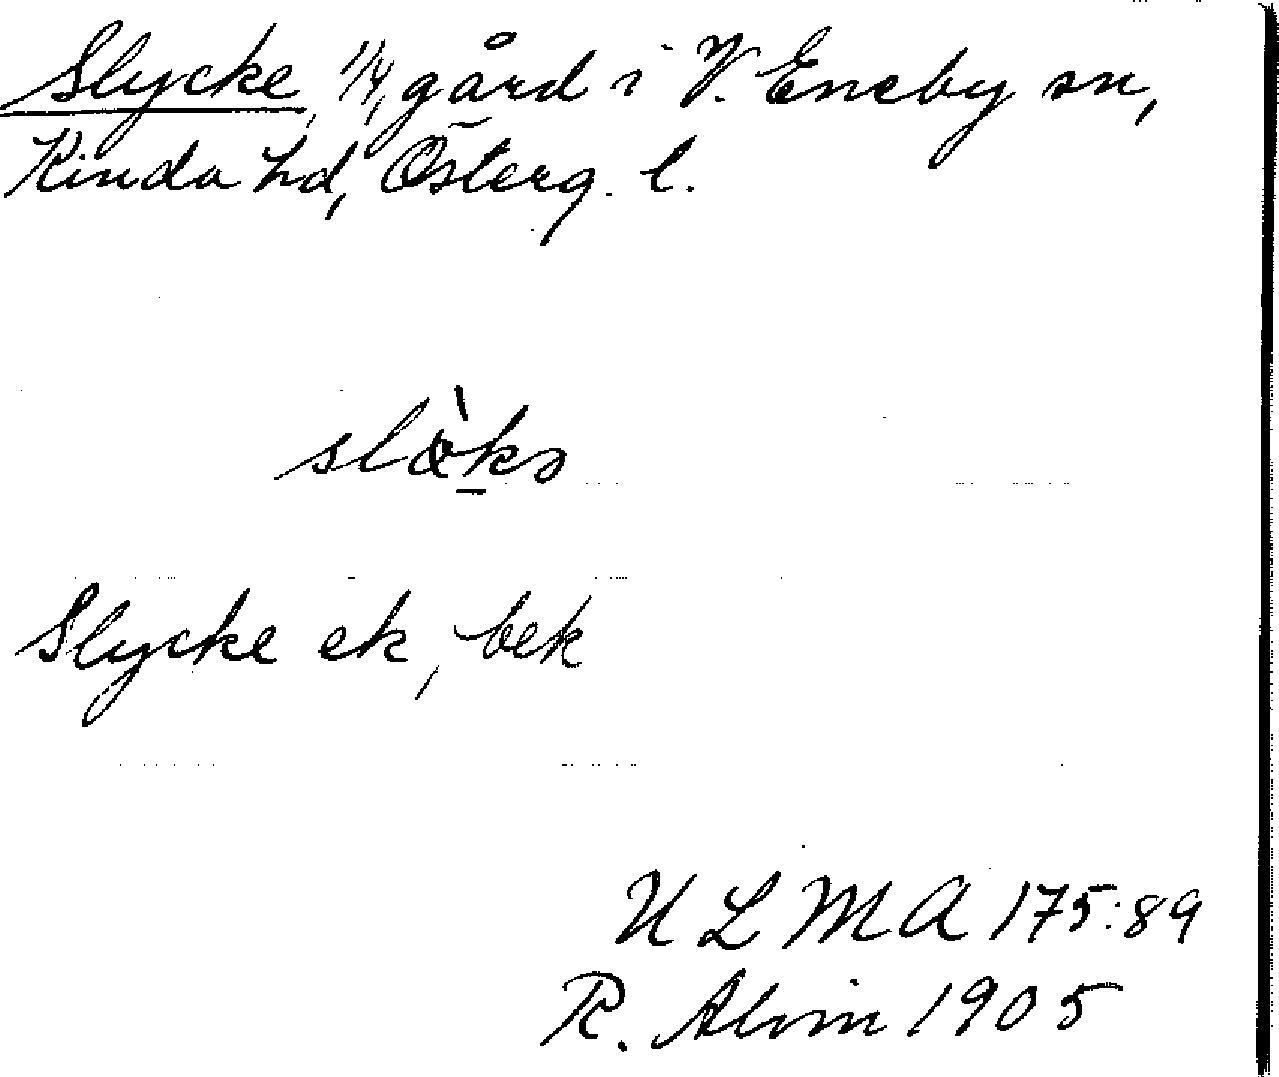 Slycke, 1/4, gård i V. Eneby sn,
Kinda hd, Österg. l.
Slycke ek, bek
ULMA 175:89
R. Alvin 1905